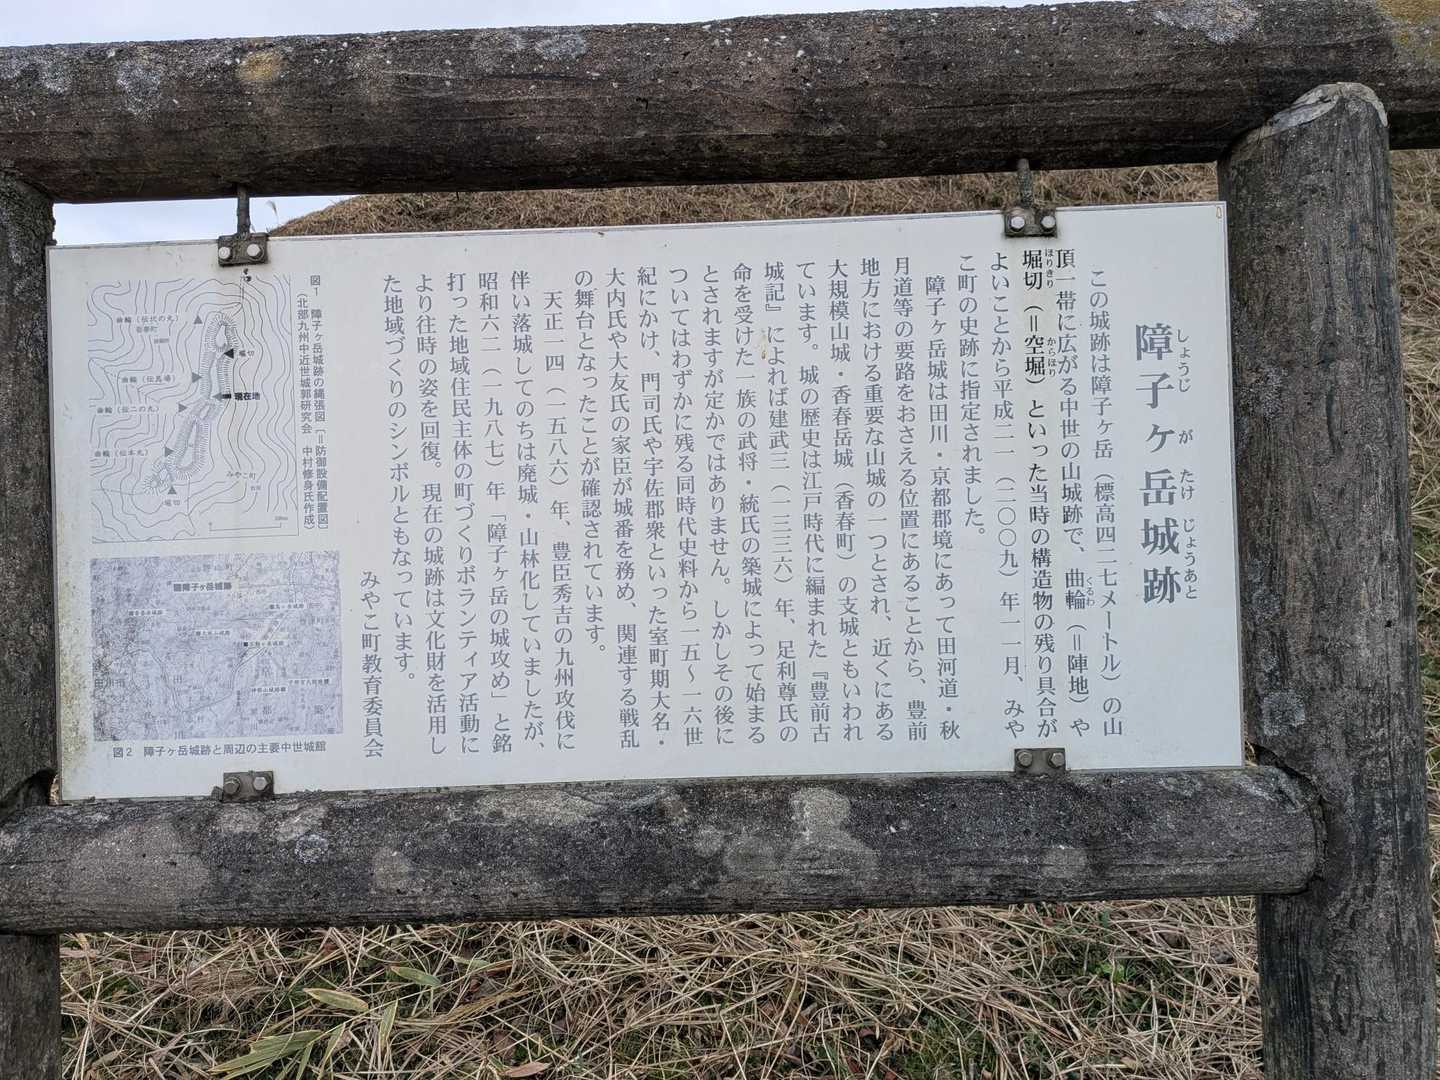 障子ヶ岳城跡
しょうじ が たけ じょうあと
この城跡は障子ヶ岳（標高四二七メートル）の山
頂一帯に広がる中世の山城跡で、曲輪（＝陣地）や
くるわ
堀切（＝空堀）といった当時の構造物の残り具合が
ほりきり からぼり
よいことから平成二一（二〇〇九）年一一月、みや
こ町の史跡に指定されました。
障子ヶ岳城は田川・京都郡境にあって田河道・秋
月道等の要路をおさえる位置にあることから、豊前
地方における重要な山城の一つとされ、近くにある
大規模山城・香春岳城（香春町）の支城ともいわれ
ています。城の歴史は江戸時代に編まれた『豊前古
城記』によれば建武三（一三三六）年、足利尊氏の
命を受けた一族の武将・統氏の築城によって始まる
とされますが定かではありません。しかしその後に
ついてはわずかに残る同時代史料から一五〜一六世
紀にかけ、門司氏や宇佐郡衆といった室町期大名・
大内氏や大友氏の家臣が城番を務め、関連する戦乱
の舞台となったことが確認されています。
天正一四（一五八六）年、豊臣秀吉の九州攻伐に
伴い落城してのちは廃城・山林化していましたが、
昭和六二（一九八七）年「障子ヶ岳の城攻め」と銘
打った地域住民主体の町づくりボランティア活動に
より往時の姿を回復。現在の城跡は文化財を活用し
た地域づくりのシンボルともなっています。
みやこ町教育委員会
図1 障子ヶ岳城跡の縄張図〔＝防御設備配置図〕
（北部九州中近世城郭研究会 中村修身氏作成）
曲輪（伝伏の丸）
香春町
堀切
曲輪（伝馬場）
現在地
曲輪（伝二の丸）
曲輪（伝本丸）
みやこ町
堀切
障子ヶ岳城跡
図2 障子ヶ岳城跡と周辺の主要中世城館